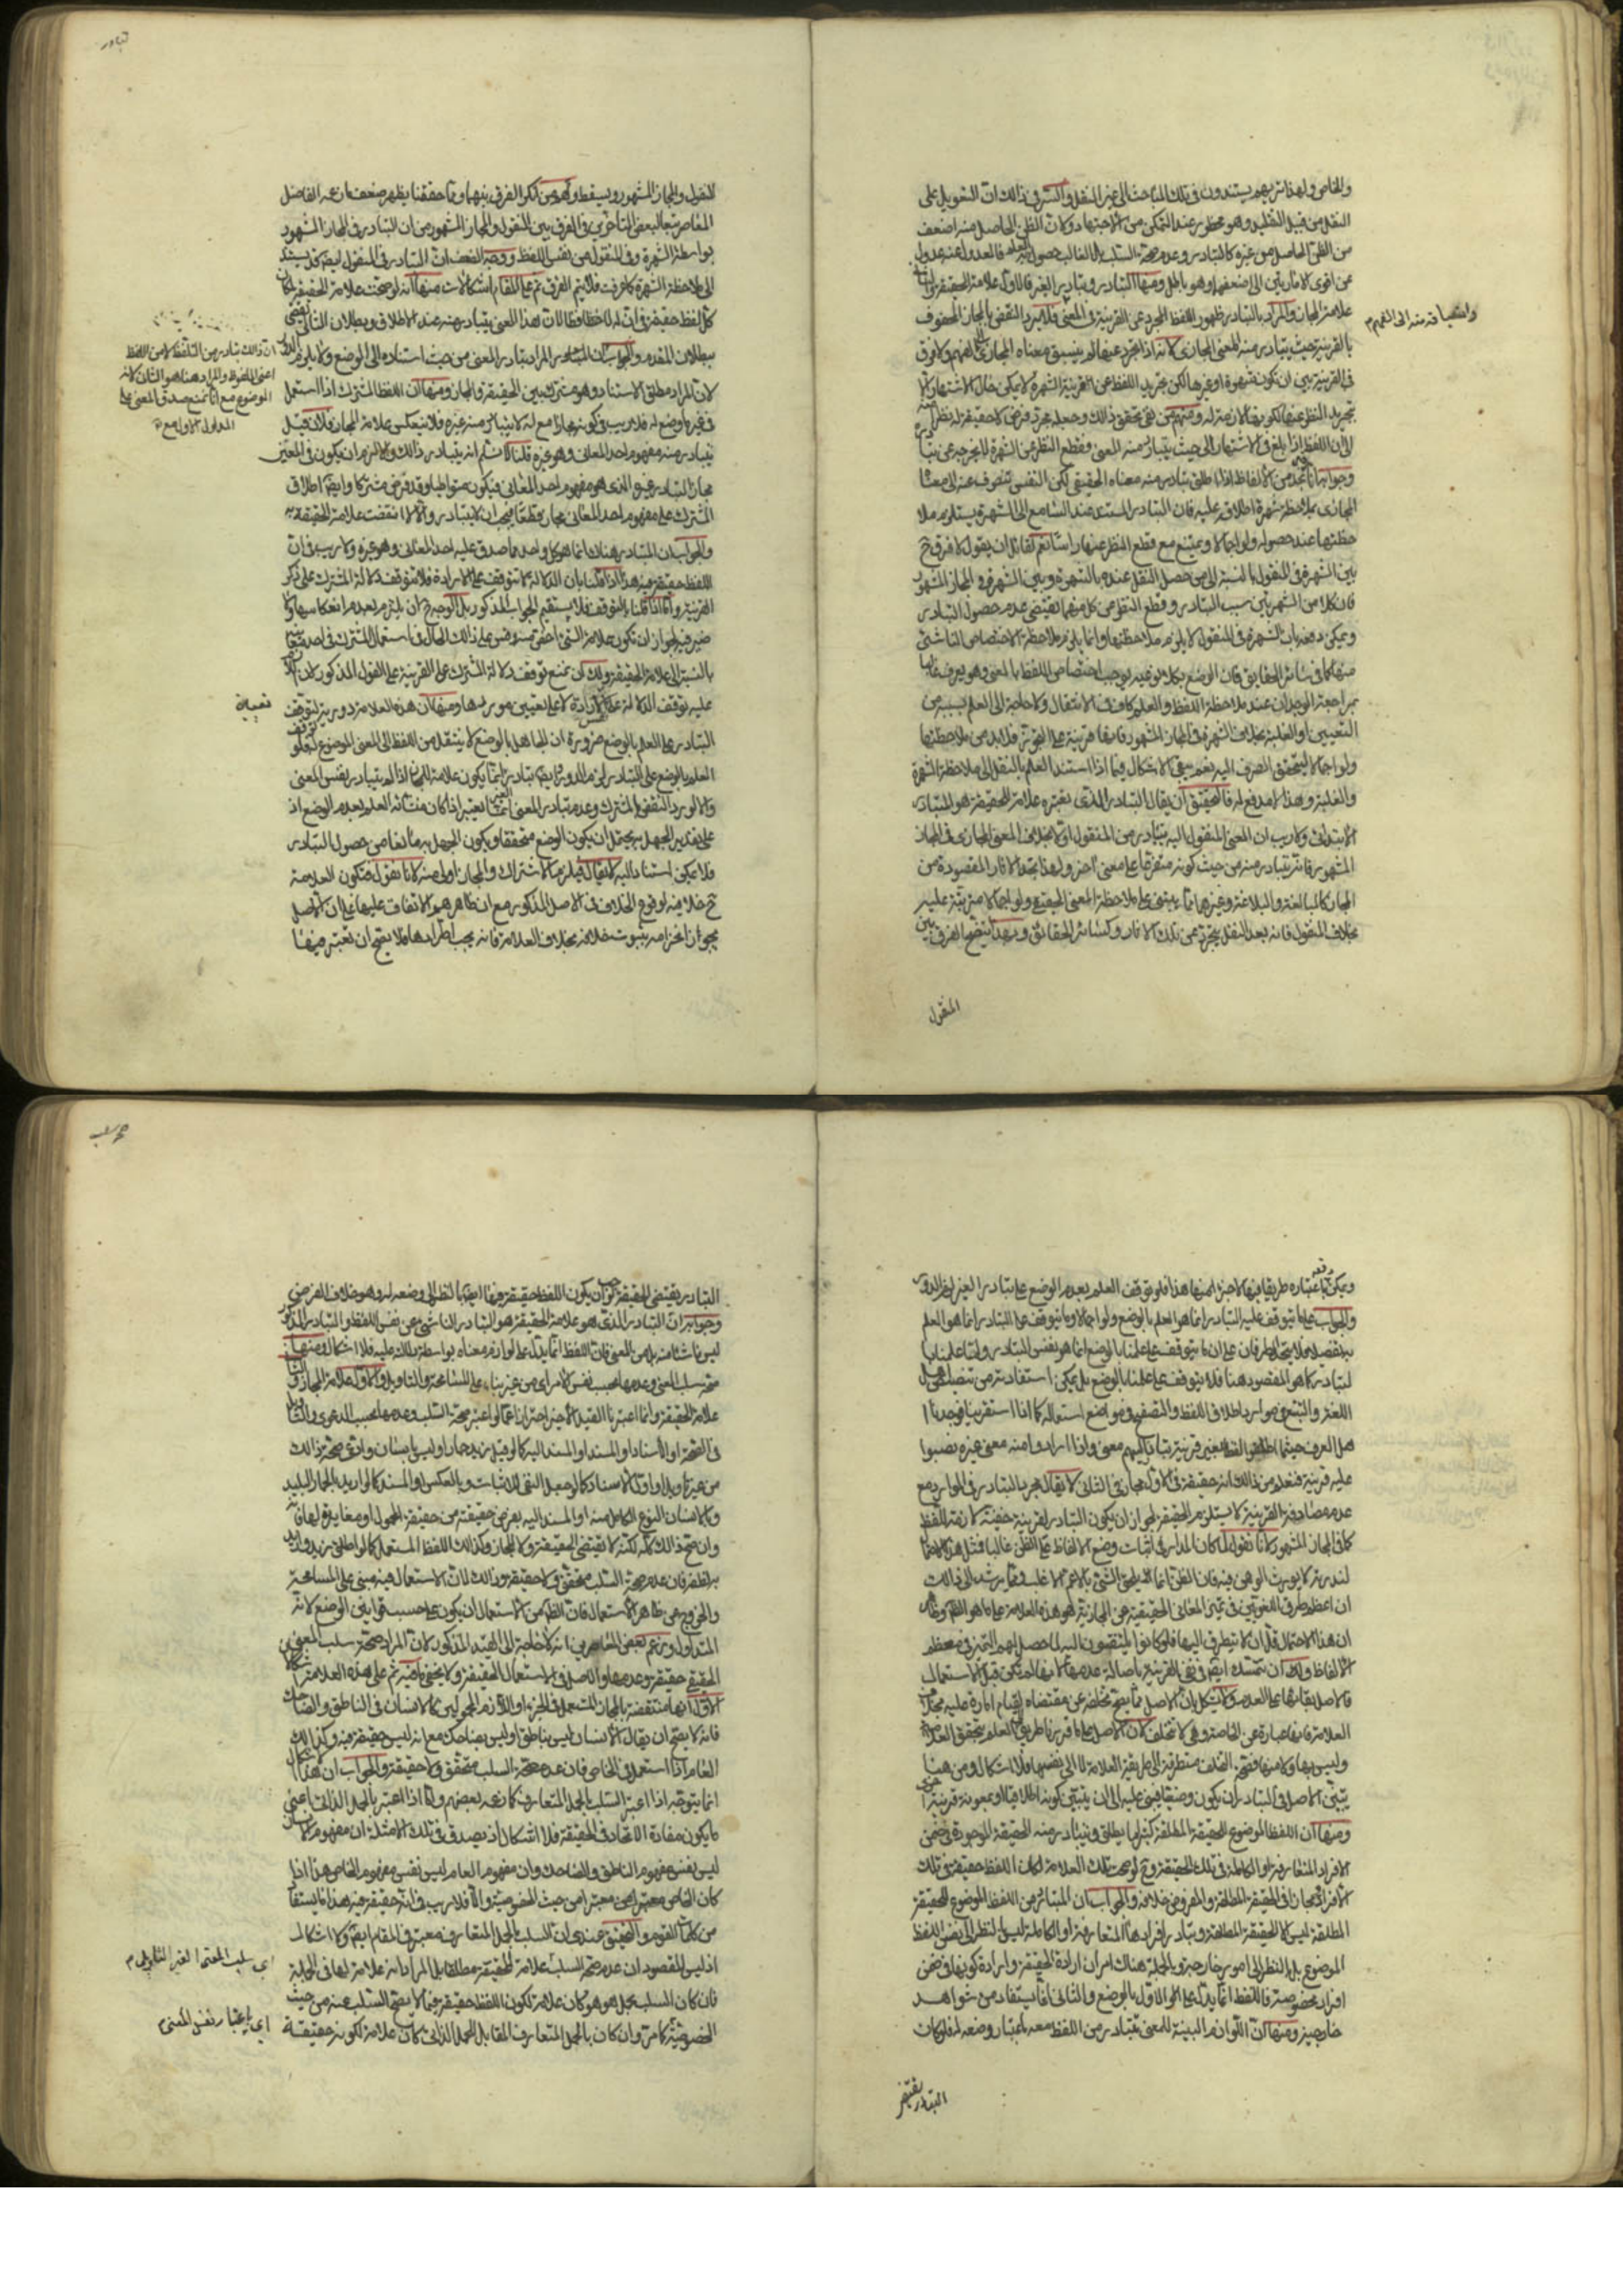 والخاص ولهذا تريهم يستندون في تلك المباحث الى غير النقل والسّر في ذلك ان التعويل على
النقل من قبل التقليد وهو محظور عند التمكن من الاجتهاد وكان الظن الحاصل منه اضعف
من الظن الحاصل من غيره كالتبادر وعدم صحة السلب فالغالب حصول العلم فالعدول عنه عدول
عن اقوى الامارتين الى اضعفهما وهو باطل ومنها التبادر وتبادر الغير فالاول علامة الحقيقة والثاني
علامة المجاز والمراد بالتبادر ظهور اللفظ المجرد عن القرينة في المعنى فلا يرد النقض بالمجاز المحفوف
بالقرينة حيث يتبادر منه المعنى المجازى لانه اذا جرد عنها لم يسبق معناه المجازى الى الفهم ولا فرق
في القرينة بين ان تكون شهرة او غيرها لكن تجريد اللفظ عن القرينة الشهرة لا يمكن حال الاشتهار
تجريد اللفظ عنها لكونها لازمة له ومنهم من نفى تحقق ذلك وجعله مجرد فرض لا حقيقة له نظرا
الى ان اللفظ اذا بلغ في الاشتهار الى حيث يتبادر منه المعنى وقطع النظر عن الشهرة لا يخرجه عن
وجوابه انا نجد من الالفاظ اذا اطلق تبادر منه معناه الحقيقي لكن النفس تنصرف عنه الى معناه
المجازى بملاحظة شهرة اطلاقه عليه فان التبادر المستند عند السامع الى الشهرة يستلزم ملا
حظتها عند حصوله ولو اجمالا ويمتنع مع قطع النظر عنها راسا نعم لقائل ان يقول لا فرق ح
بين الشهرة في المنقول بالنسبة الى من حصل النقل عنده بالشهرة وبين الشهرة في المجاز المشهور
فان كلا من الشهرتين سبب التبادر وقطع النظر عن كل منهما يقتضي عدم حصول التبادر
ويمكن دفعه بان الشهرة في المنقول لا يلزم ملاحظتها وانما يلزم ملاحظة الاختصاص الناشئ
منها كما في سائر الحقايق فان الوضع بكلا نوعيه يوجب اختصاص اللفظ بالمعنى وهو يعرف
بمراجعة الوجدان عند ملاحظة اللفظ والعلم كاف في الانتقال ولا حاجة الى العلم بسببه من
التعيين او الغلبة بخلاف الشهرة في المجاز المشهور فانها قرينة على التجوز فلا بد من ملاحظتها
ولو اجمالا ليتحقق الصرف اليه نعم يبقى الاشكال فيما اذا استند العلم بالنقل الى ملاحظة الشهرة
والغلبة وهذا لا مدفع له فالتحقيق ان يقال التبادر الذى نعتبره علامة للحقيقة هو التبادر
الابتدائي ولا ريب ان المعنى المنقول اليه يتبادر من المنقول اولا بخلاف المعنى المجازى في المجاز
المشهور فانه يتبادر منه من حيث كونه متفرعا على معنى اخر ولهذا تجد الاثار المقصودة من
المجاز كالمبالغة والبلاغة وغيرهما مما يبتنى على ملاحظة المعنى الحقيقي ولو اجمالا مترتبة عليه
بخلاف المنقول فانه بعد النقل يتجرد عن تلك الاثار وكسائر الحقائق وبهذا يتضح الفرق بين
المنقول
تبادر
المنقول والمجاز المشهور ويسقط ... الفرق بينهما ومما حققنا يظهر ضعف ما زعمه الفاضل
المعاصر تبعا لبعض المتاخرين في الفرق بين المنقول والمجاز المشهور من ان التبادر في المجاز المشهور
بواسطة الشهرة وفي المنقول من نفس اللفظ ووجه الضعف ان التبادر في المنقول ايضا قد يستند
الى ملاحظة الشهرة كما عرفت فلا يتم الفرق ثم على المقام اشكالات منها انه لو صحت علامة الحقيقة لكان
كل لفظ حقيقة في ان له لافظا ... هذا المعنى يتبادر منه عند الاطلاق وبطلان التالى يقضى
ببطلان المقدم والجواب ان المراد تبادر المعنى من حيث استناده الى الوضع ولا يلزم الدور
لان المراد مطلق الاستناد وهو مشترك بين الحقيقة والمجاز ومنها ان اللفظ المشترك اذا استعمل
في غير ما وضع له فلا ريب في كونه مجازا مع انه لا يتبادر منه غيره فلا تنعكس علامة المجاز فلان قيل
يتبادر منه مفهوم احد المعانى وهو غيره قلنا لا نسلم انه يتبادر ذلك والا لزم ان يكون في المعين
مجازا لتبادر غيره الذى هو مفهوم احد المعانى فيكون متواطيا وقد فرض مشتركا وايضا اطلاق
المشترك على مفهوم احد المعانى مجاز قطعا فيجب ان لا يتبادر والا لانتقضت علامة الحقيقة به
والجواب ان المتبادر هناك انما هو كل واحد مما صدق عليه احد المعانى وهو غيره ولا ريب في ان
اللفظ حقيقة فيه هذا اذا قلنا بان الدلالة لا تتوقف على الارادة فلا تتوقف دلالة المشترك على ذكر
القرينة واما اذا قلنا بالتوقف فلا يستقيم الجواب المذكور بل الوجه ح ان يلتزم بعدم انعكاسها ولا
ضير فيه لجواز ان تكون علامة الشئ اخص منه وقس على ذلك الحال في استعمال المشترك في احد معنييه
بالنسبة الى علامة الحقيقة ولك ان تمنع توقف دلالة المشترك على القرينة على القول المذكور لان
عليه توقف الدلالة على الارادة لا على تعيين موردها ومنها ان هذه العلامة دورية لتوقف
التبادر على العلم بالوضع ضرورة ان الجاهل بالوضع لا ينتقل من اللفظ الى المعنى الموضوع له فلو توقف
العلم بالوضع على التبادر لزم الدور وايضا تبادر الغير انما يكون علامة للمجاز اذا لم يتبادر نفس المعنى
والا لورد النقض بالمشترك وعدم تبادر المعنى انما يعتبر اذا كان منشائه العلم بعدم الوضع اذ
على تقدير الجهل به يحتمل ان يكون الوضع متحققا ويكون الجهل به مانعا من حصول التبادر
فلا يمكن استناد اليه لا يقال فيلزم الاشتراك والمجاز اولى منه لانا نقول فتكون العلامة
ح خلافية لوقوع الخلاف في الاصل المذكور مع ان ظاهرهم الاتفاق عليها على ان الاصل
يجوز انخرامه بثبوت خلافه بخلاف العلامة فانه يجب اطرادها فلا يصح ان تعتبر فيها
ان ذلك تبادر من التلفظ لا من اللفظ
اعنى الملفوظ والمراد هنا هو الثانى لانه
الموضوع مع انا نمنع صدق المعنى على
ويمكن اعتباره طريقا فيها لاجزء منها هذا فلو توقف العلم بعدم الوضع على تبادر الغير لزم الدور
والجواب ... ما يتوقف عليه التبادر انما هو العلم بالوضع ولو اجمالا وما يتوقف على التبادر انما هو العلم
به تفصيلا فلا يتحد الطرفان على ان ما يتوقف على علمنا بالوضع انما هو نفس التبادر واما علمنا با
لتبادر كما هو المقصود هنا فلا يتوقف على علمنا بالوضع بل يمكن استفادته من تنصيص اهل
اللغة والتتبع في موارد اطلاق اللفظ والتصفح في مواضع استعماله كما اذا استقرينا فوجدنا ا
هل العرف حيثما اطلقوا لفظا بغير قرينة يتبادر اليهم معنى واذا ارادوا منه معنى غيره نصبوا
عليه قرينة فنعلم من ذلك انه حقيقة في الاول مجاز في الثانى لا يقال مجرد التبادر في الموارد مع
عدم مصادفة القرينة لا يستلزم الحقيقة لجواز ان يكون التبادر لقرينة خفية لازمة للفظ
كما في المجاز المشهور لانا نقول لما كان المدار في اثبات وضع الالفاظ على الظن غالبا فمثل هذا الاحتمال
لندرته لا يورث الوهن فيه فان الظن انما يلحق الشئ بالاعم الاغلب ومما يرشد الى ذلك
ان اعظم طرق اللغويين في تميز المعانى الحقيقية عن المجازية هو هذه العلامة على ما هو الظاهر وظاهر
ان هذا الاحتمال قل ان لا يتطرق اليها فلو كانوا يلتفتون اليه لما حصل لهم التميز في معظم
الالفاظ ولك ان تتمسك ايضا في نفى القرينة باصالة عدمها لانها لم تكن قبل الاستعمال
فالاصل بقائها على العدم ولا يشكل بان الاصل مما يصح تخلفه عن مقتضاه لقيام امارة عليه بخلاف
العلامة فانها عبارة عن الخاصة وهي لا تتخلف لان الاصل على ما قررنا طريق الى العلم بتحقق العلامة
وليس بها ولا منها فصحة التخلف متطرقة الى طريقة العلامة لا الى نفسها فلا اشكال ومن هنا
يتبين ان الاصل في التبادر ان يكون وضعيا فيبنى عليه الى ان يتبين كونه اطلاقيا او بمعونة قرينة اخرى
ومنها ان اللفظ الموضوع للحقيقة المطلقة كثيرا ما يطلق ويتبادر منه الحقيقة الموجودة في ضمن
الافراد المتعارفة او الكاملة في تلك الحقيقة ولو صحت تلك العلامة لكان اللفظ حقيقة في تلك
الافراد مجازا في الحقيقة المطلقة والمفروض خلافه والجواب ان المتبادر من اللفظ الموضوع للحقيقة
المطلقة ليس الا الحقيقة المطلقة وتبادر افرادها المتعارفة او الكاملة ليس بالنظر الى نفس اللفظ
الموضوع بل بالنظر الى امور خارجية وبالجملة هناك امران ارادة الحقيقة وارادة كونها في ضمن
افراد مخصوصة فاللفظ انما يدل على الاول بالوضع والثانى انما يستفاد من شواهد
خارجية ومنها ان اللوازم البينة للمعنى يتبادر من اللفظ معه باعتبار وضعه له فلو كان
التبادر يقتضى
التبادر يقتضى الحقيقة لوجب ان يكون اللفظ حقيقة فيها ايضا بالنظر الى وضعه له وهو خلاف الفرض
وجوابه ان التبادر الذى هو علامة الحقيقة هو التبادر الناشئ عن نفس اللفظ والتبادر المذكور
ليس ناشئا منه بل من المعنى فان اللفظ انما يدل على لوازم معناه بواسطة دلالته عليه فلا اشكال ومنها
صحة سلب المعنى وعدمها بحسب نفس الامر اى من غير بناء على المسامحة والتاويل والاول علامة المجاز والثانى
علامة الحقيقة وانما اعتبرنا القيد الاخير احترازا عما لو اعتبر صحة السلب وعدمها بحسب الدعوى والتاويل
في الصحة او الاسناد او المسند او المسند اليه كما لو قيل زيد حمار او ليس بانسان وادعى صحة ذلك
من غير تاويل او اول الاسناد كما لو جعل النفى للاثبات وبالعكس او المسند كما لو اريد بالحمار البليد
وبالانسان النوع الكامل منه او المسند اليه بفرض حقيقته من حقيقة المحمول او مغايرة لها فانه
وان صح ذلك كله لكنه لا يقتضى الحقيقة ولا المجاز وكذلك اللفظ المستعمل كما لو اطلق زيد واريد
به ظفره فان عدم صحة السلب متحقق ولا حقيقة وذلك لان الاستعمال فيه مبنى على المسامحة
والخروج عن ظاهر الاستعمال فان الظاهر من الاستعمال ان يكون على حسب قوانين الوضع لانه
المتداول وزعم بعض المعاصرين انه لا حاجة الى القيد المذكور لان المراد صحة سلب المعنى
الحقيقي حقيقة وعدمها والاصل في الاستعمال الحقيقة ولا يخفى ما فيه ثم على هذه العلامة اشكالات
الاول انها منتقضة بالمجاز المستعمل في الجزء او اللازم المحمولين كالانسان في الناطق والضاحك
فانه لا يصح ان يقال الانسان ليس بناطق او ليس بضاحك مع انه ليس حقيقة فيه وكذلك
العام اذا استعمل في الخاص فان عدم صحة السلب متحقق ولا حقيقة والجواب ان هذا الاشكال
انما يتوجه اذا اعتبر السلب بالحمل المتعارف كما زعمه بعضهم واما اذا اعتبر بالحمل الذاتى اعنى
ما يكون مفاده الاتحاد في الحقيقة فلا اشكال اذ يصدق في تلك الامثلة ان مفهوم الانسان
ليس نفس مفهوم الناطق والضاحك وان مفهوم العام ليس نفس مفهوم الخاص هذا اذا
كان الخاص معتبرا من حيث الخصوصية والا فلا ريب في انه حقيقة فيه هذا ما يستفاد
من كلمات القوم والتحقيق عندى ان السلب بالحمل المتعارف معتبر في المقام ايضا ولا اشكال
اذ ليس المقصود ان عدم صحة السلب علامة الحقيقة مطلقا بل المراد انه علامة لها في الجملة
فان كان السلب بحمل هو هو كان علامة لكون اللفظ حقيقة فيما لا يصح السلب عنه من حيث
الخصوصية كما مر وان كان بالحمل المتعارف المقابل للحمل الذاتى كان علامة لكونه حقيقة
اى باعتبار نفس المعنى